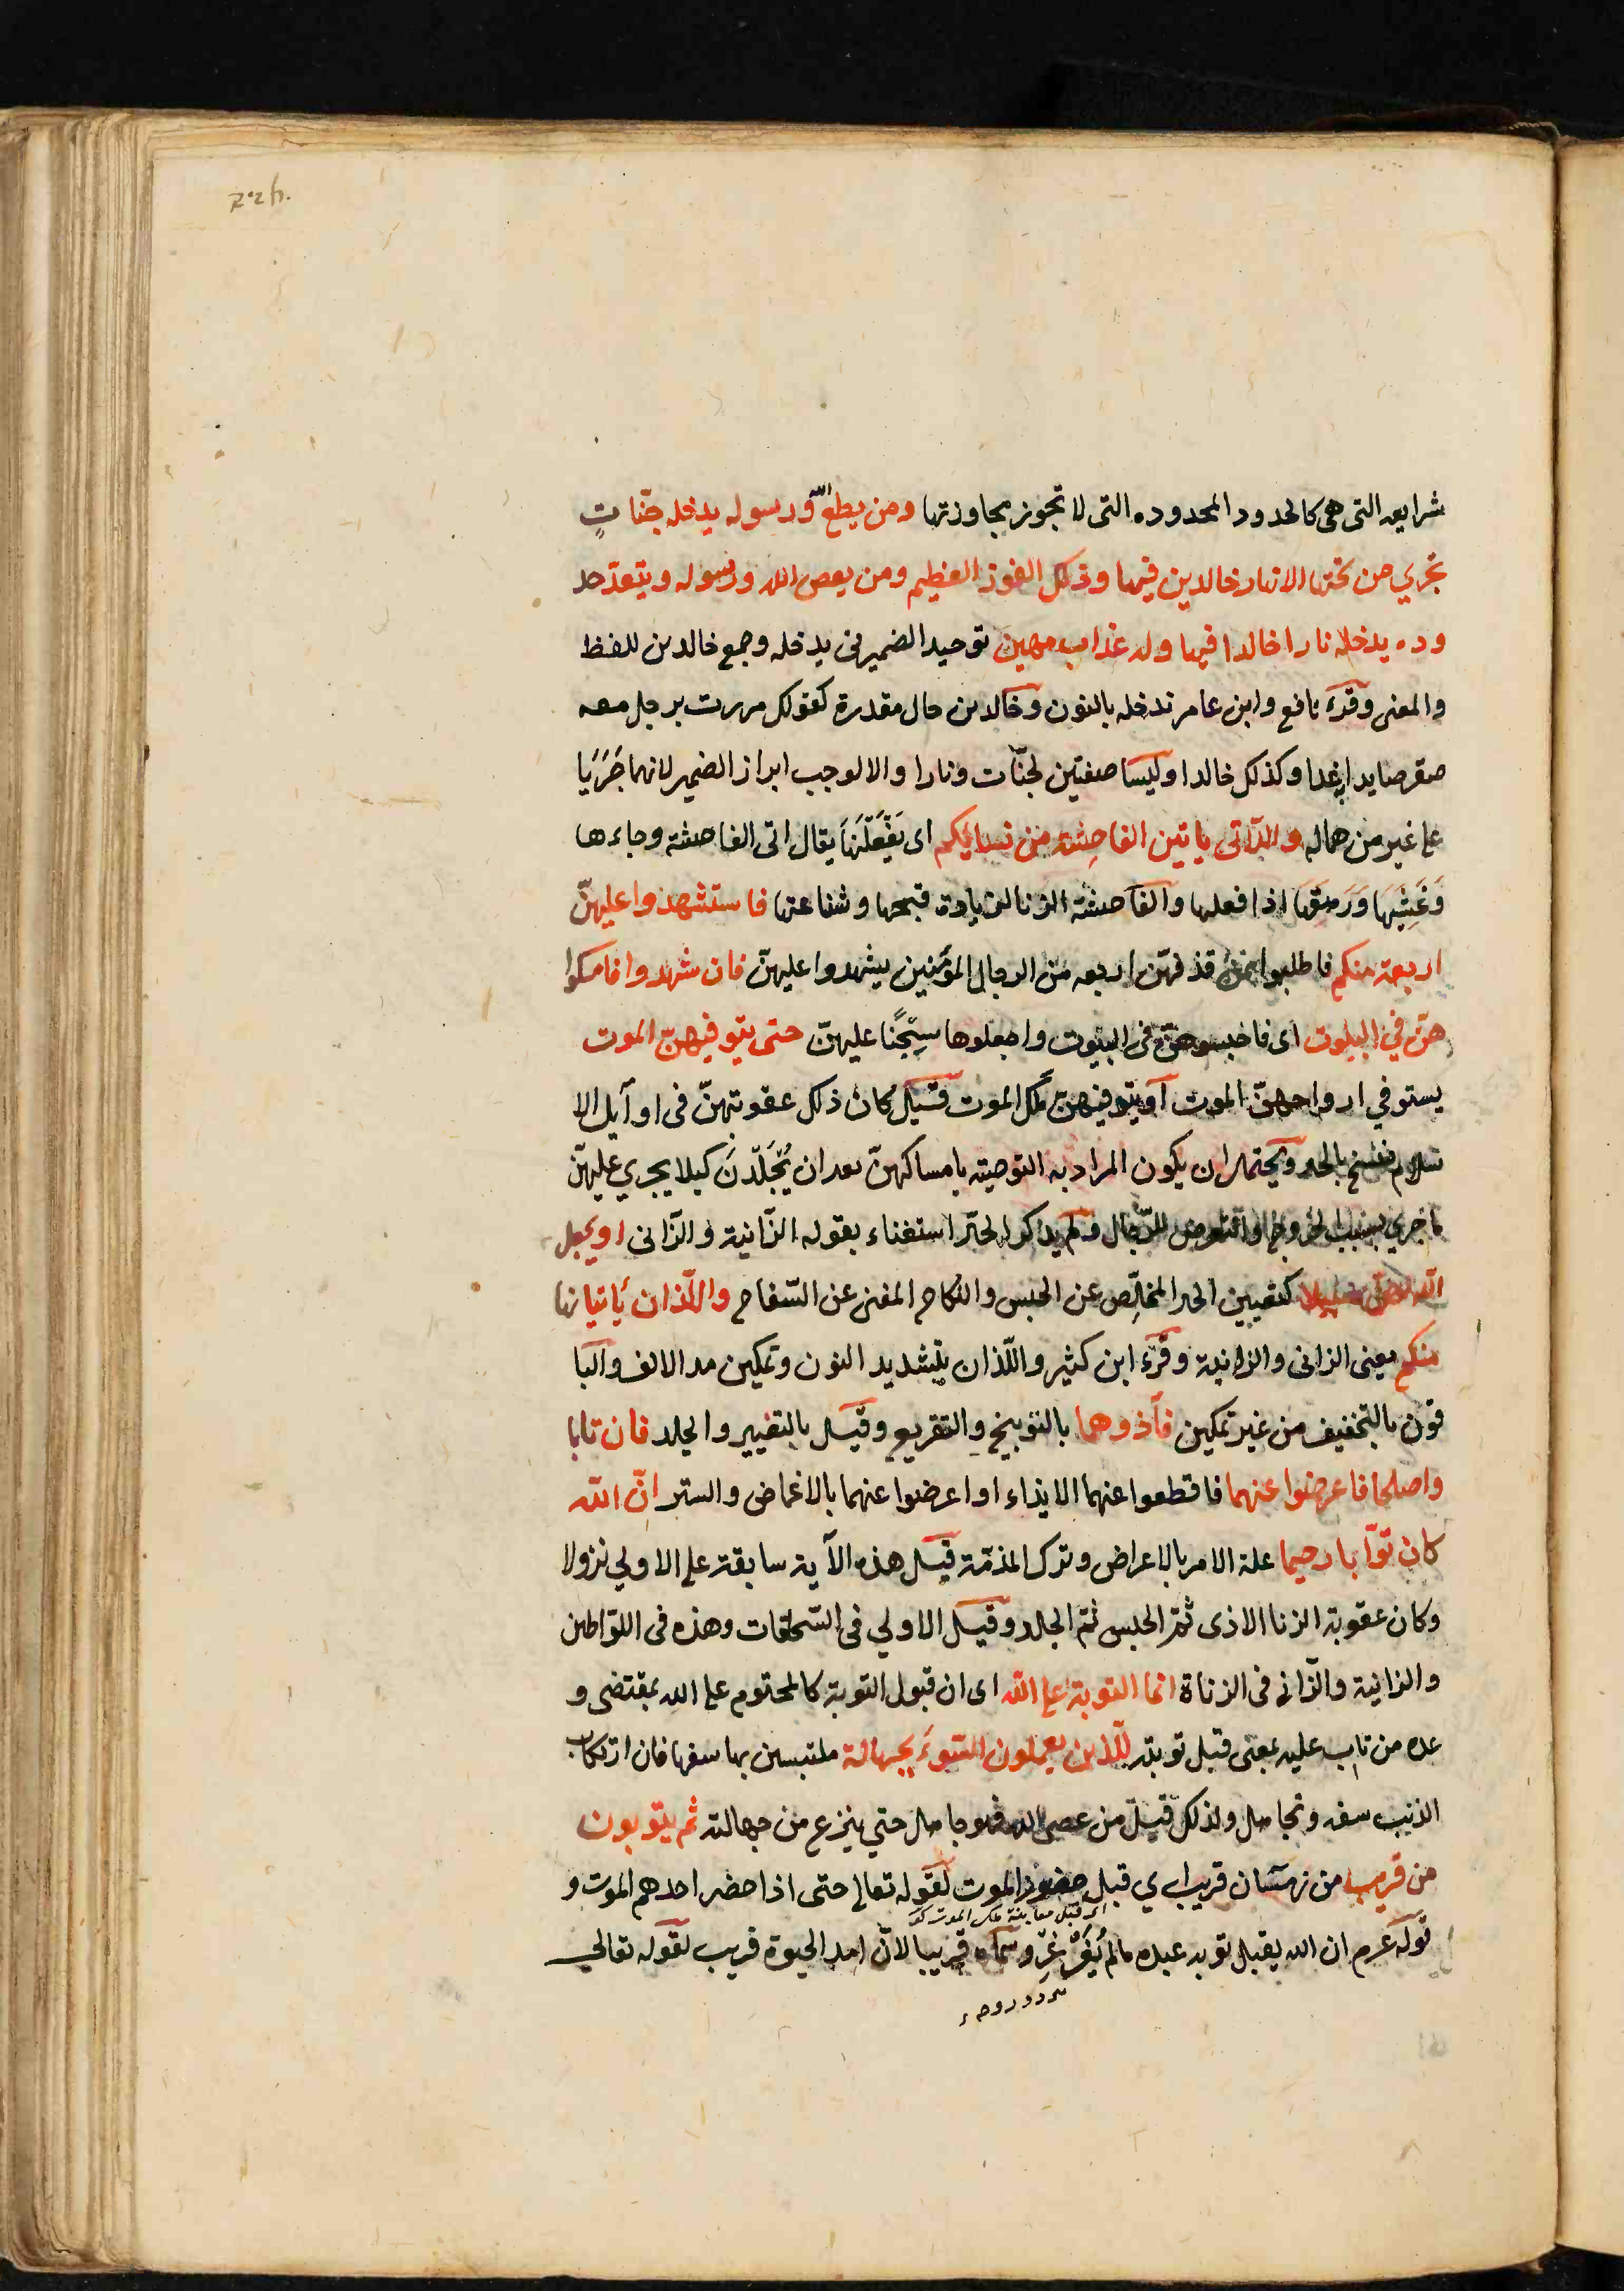 شرايعه التى هى كالحدود المحدوده التى لا تجوز مجاوزتها ومن يطع الله ورسوله يدخله جنّاتٍ
تجري من تحتها الانهار خالدين فيها وذلكل الفوز العظيم ومن يعص الله ورسوله ويتعدّ حد
وده يدخله نارا خالدا فيها وله عذاب مهين توحيد الضمير فى يدخله وجمع خالدين للفظ
والمعنى وقرء نافع وابن عامر ندخله بالنون وخالدين حال مقدرة كقولكل مررت برجل معه
صقر صايدا به غدا وكذلكل خالدا وليسا صفتين لجنّات ونارا والا لوجب ابراز الضمير لانهما جَرَيَا
على غير من هماله والّاتى ياتين الفاحِشة من نسايكم اى يَفْعَلْنَهَا يقال اتى الفاحشة وجاءها
وَغَشِيَهَا وَرَهِقَهَا اذا فعلها والفاحشة الزنا لزيادة قبحها وشناعتها فاستشهدوا عليهنّ
اربعة منكم فاطلبوا ممّن قذفهنّ اربعه من الرجال المؤمنين يشهدوا عليهنّ فان شهدوا فامسكوا
هنّ في البيوت اى فاحبسوهنّ فى البيوت واجعلوها سِجْنًا عليهنّ حتى يتوفيهنّ الموت
يستوفي ارواحهنّ الموت او يتوفيهنّ ملكل الموت قيل كان ذلكل عقوبتهنّ فى اوآيل الا
سلام فنسخ بالحد ويحتمل ان يكون المراد به التوصية بامساكهنّ بعد ان يُجْلَدْنَ كيلا يجري عليهنّ
ما جري بسبب الخروج والتعرض للرّجال ولم يذكر الحدّ استغناء بقوله الزّانية والزّانى او يجعل
اللّه لهنّ سبيلا كتعيين الحد المخلِّص عن الحبس والنكاح المغنى عن السّفاح واللّذان ياتيانها
منكم يعنى الزانى والزانية وقرء ابن كثير واللّذان بتشديد النون وتمكين مد الالف والبا
قون بالتخفيف من غير تمكين فآذوهما بالتوبيخ والتقريع وقيل بالتعيير والجلد فان تابا
واصلحا فاعرضوا عنهما فاقطعوا عنهما الايذاء او اعرضوا عنهما بالاغماض والستر انّ اللّه
كان توّابا رحيما علة الامر بالاعراض وترك المذمّة قيل هذه الآية سابقة على الاولي نزولا
وكان عقوبة الزنا الاذى ثمّ الحبس ثمّ الجلد وقيل الاولي فى السّحاقات وهذه فى اللوّاطين
والزانية والزّانى فى الزناة انما التوبة على اللّه اى ان قبول التوبة كالمحتوم على الله بمقتضى و
عده من تاب عليه بمعنى قبل توبته للّذين يعملون السّوءَ بجهالة ملتبسين بها سفها فان ارتكاب
الذنب سفه وتجاهل ولذلكل قيل من عصى الله فهو جاهل حتي ينزع من جهالته ثم يتوبون
من قريب من زمان قريب اى قبل حضور الموت لقوله تعالى حتى اذا حضر احدهم الموت و
اى قبل معاينة ملك الموت
قوله عرم ان الله يقبل توبه عبده مالم يُغَرْغِرْ وسماه قريبا لانّ امد الحيوة قريب لقوله تعالي
يردد روحه